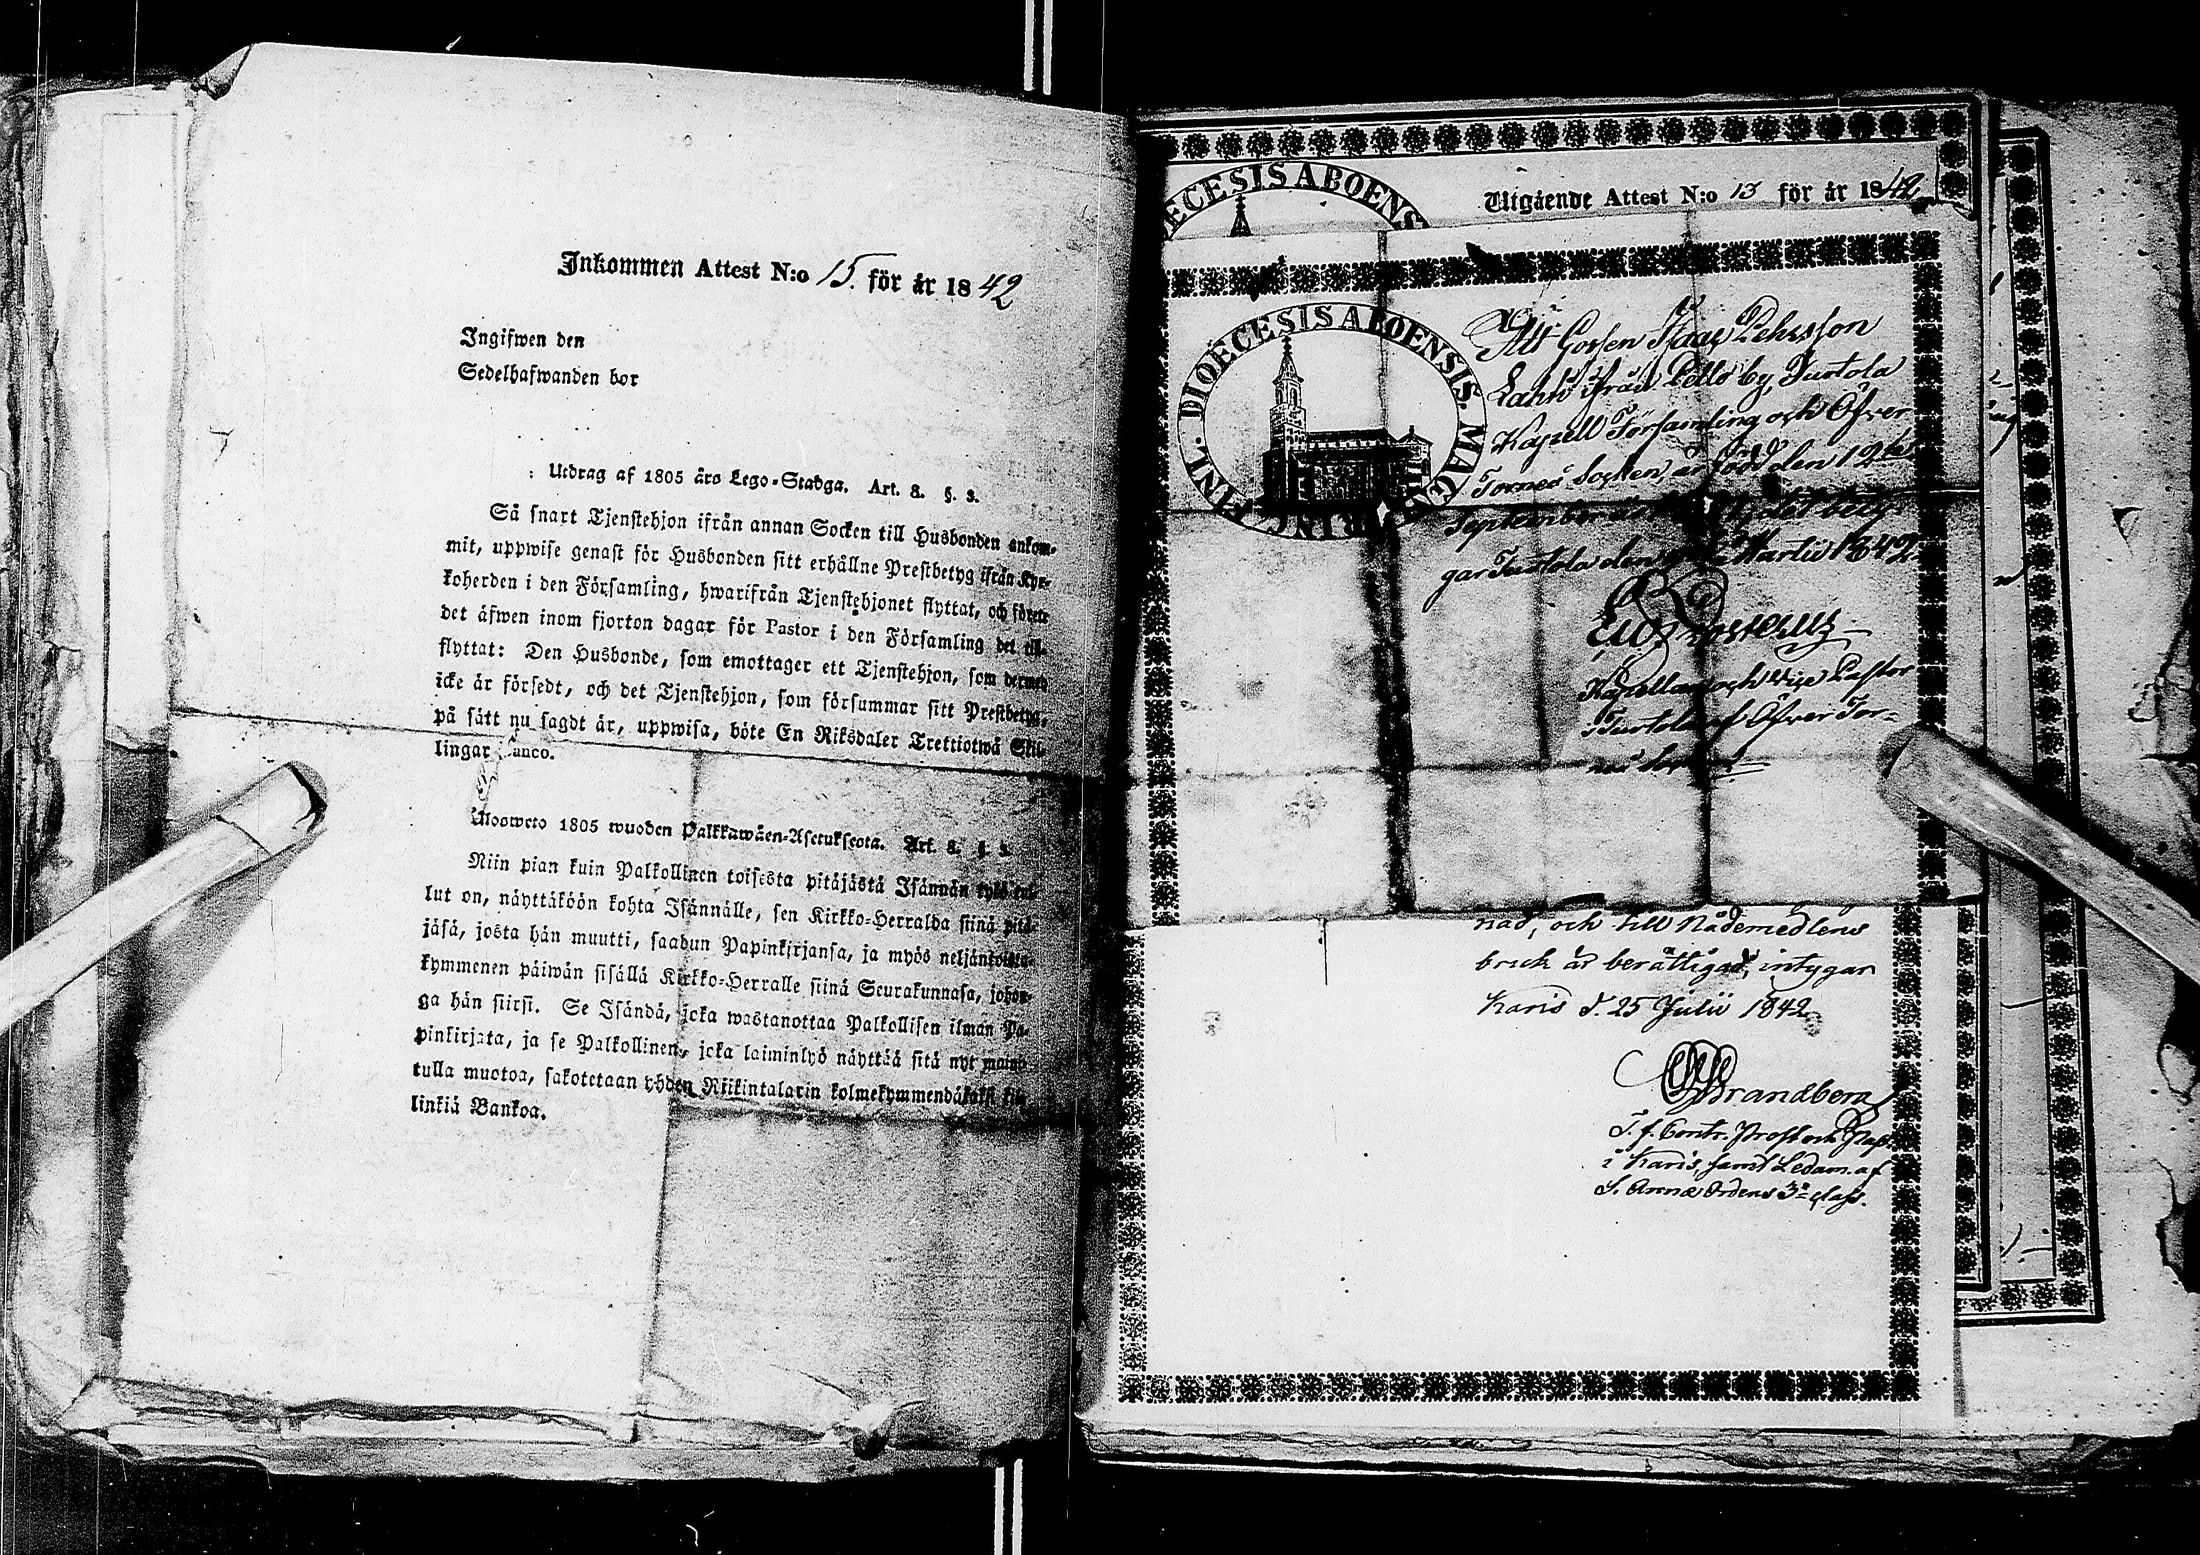 Inkommen Attest N:o 15. för år 1842
Ingifwen den
Sedelhafwanden bor
Utdrag af 1805 års Lego-Stadga. Art. 8. §. 3.
Så snart Tjenstehjon ifrån annan Socken till Husbonden ankom-
mit, uppwise genast för Husbonden sitt erhållne Prestbetyg ifrån Kyr-
koherden i den Församling, hwarifrån Tjenstehjonet flyttat, och förete
det äfwen inom fjorton dagar för Pastor i den Församling det till-
flyttat: Den Husbonde, som emottager ett Tjenstehjon, som dermed
icke är försedt, och det Tjenstehjon, som försummar sitt Prestbetyg,
på sätt nu sagdt är, uppwisa, böte En Riksdaler Trettiotwå Skil-
lingar Banco.
Ulosweto 1805 wuoden Palkkawäen-Asetuksesta. Art. 8. §.
Niin pian kuin Palkollinen toisesta pitäjästä Isännän tykö tul-
lut on, näyttäköön kohta Isännälle, sen Kirkko-Herralda siinä pitä-
jäsä, josta hän muutti, saadun Papinkirjansa, ja myös neljäntoista-
kymmenen päiwän sisällä Kirkko-Herralle siinä Seurakunnasa, johon-
ga hän siirsi. Se Isändä, jcka wastanottaa Palkollisen ilman Pa-
pinkirjata, ja se Palkollinen, jcka laiminlyö näyttää sitä nyt mainit-
tulla muotoa, sakotetaan yhden Riikintalarin kolmekymmendäkaksi kil-
linkiä Bankoa.
DIOECESIS ABOENSIS
Utgående Attest N:o 13 för år 1842
DIOECESIS ABOENSIS. MAGN. PRINC. FINL.
Att Gossen Isaac Pehrsson
Lahti ifrån Pello by, Turtola
Kapell Församling och Öfver
Torneå Socken, är född den 12te
September det bety-
gar Turtola den Martii 1842
Kapellan och Vice Pastor
i Turtola af Öfver Tor-
neå Socken
nad, och till Nådemedlens
bruk är berättigad, intygar
Karis d. 25 Julii 1842
Brandberg
T. f. Contr. Prost och Past.
i Karis, samt Ledam. af
S. Annæ Ordens 3e class.